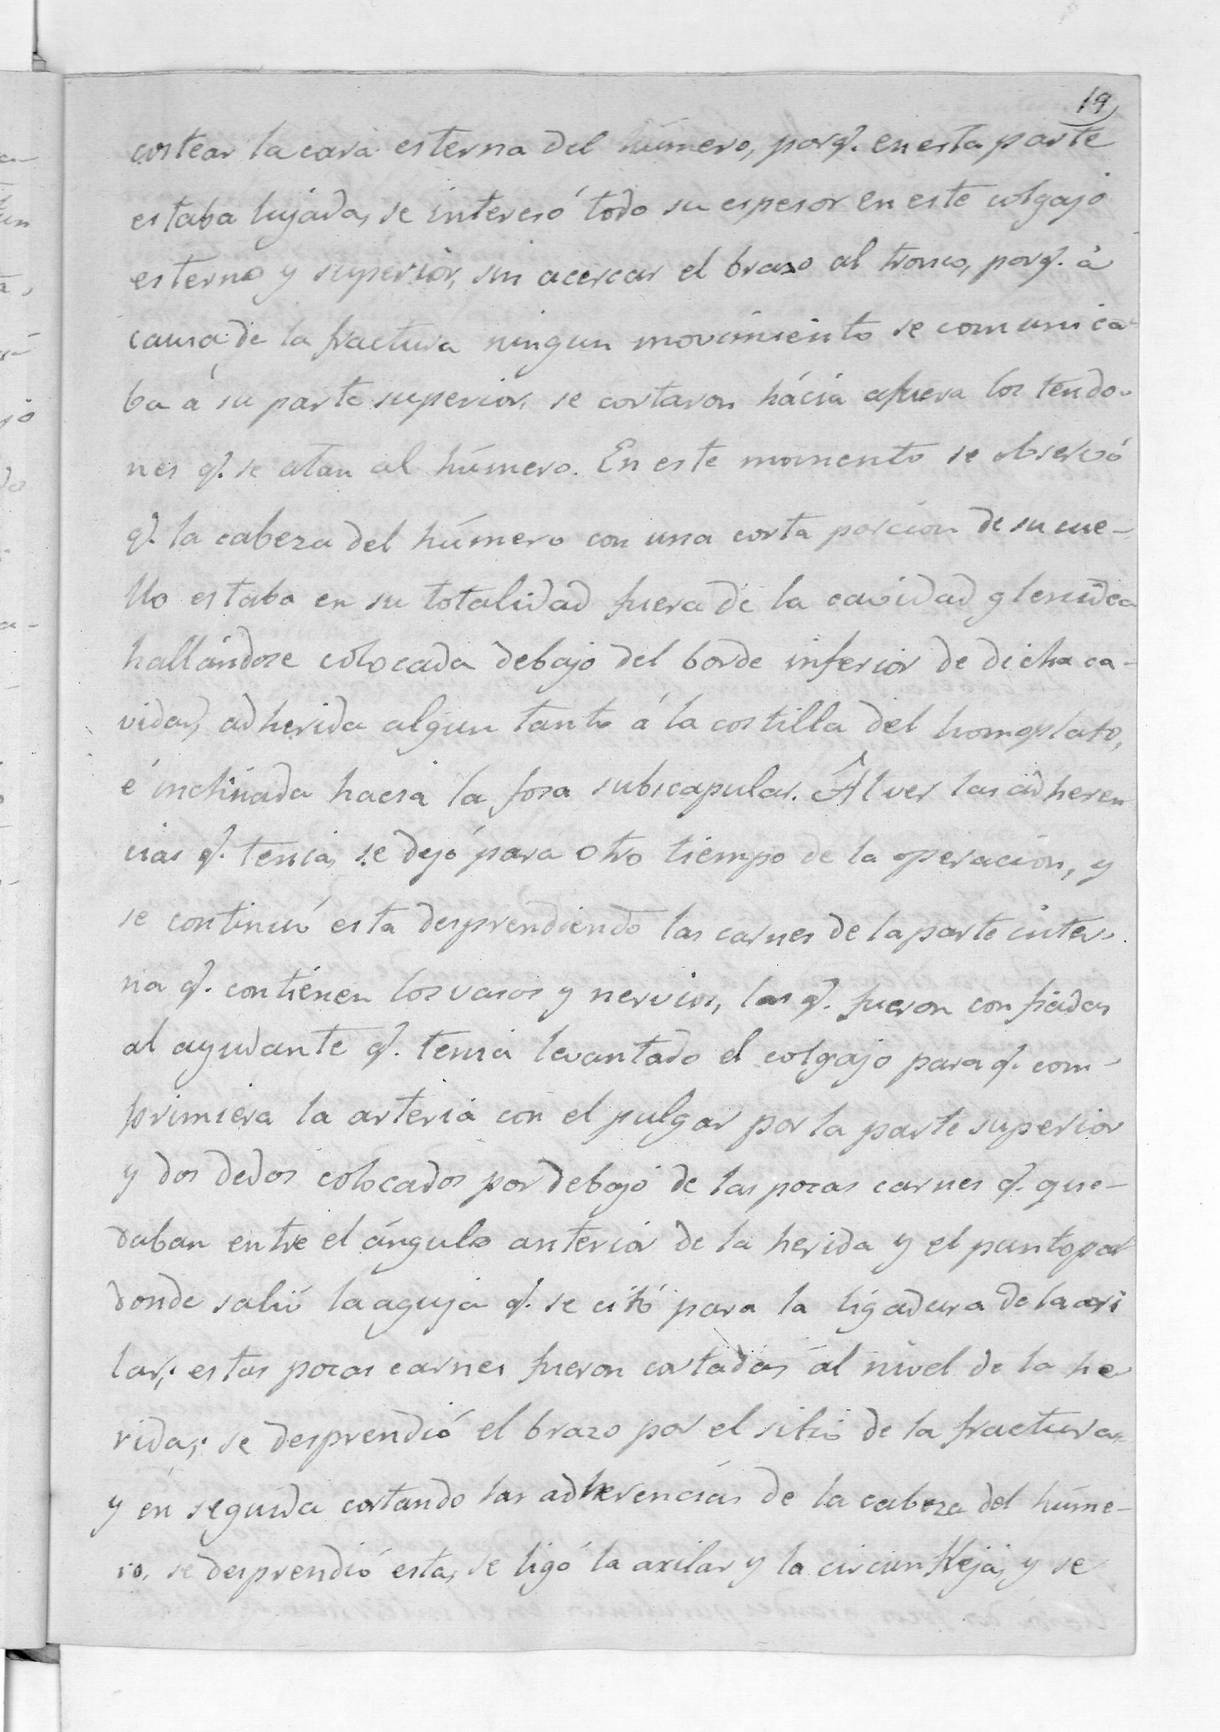 19
costear la cara esterna del húmero, porq.e en esta parte
estaba lujada, se interesó todo su espesor en este colgajo
esterno y superior, sin acercar el brazo al tronco, porq.e à
causa de la fractura ningun movimiento se comunica-
ba á su parte superior, se cortaron hácia afuera los tendo-
nes q.e se atan al húmero. En este momento se observó
q.e la cabeza del húmero con una corta porcion de su cue-
llo estaba en su totalidad fuera de la cavidad glenoidea
hallándose colocada debajo del borde inferior de dicha ca-
vidad, adherida algun tanto á la costilla del homoplato,
é inclinada hacia la fosa subscapular. Al ver las adheren
cias q.e tenia, se dejó para otro tiempo de la operacion, y
se continuó esta desprendiendo las carnes de la parte inter-
na q.e contienen los vasos y nervios, las q.e fueron confiadas
al ayudante q.e tenia levantado el colgajo para q.e com-
primiera la arteria con el pulgar por la parte superior
y dos dedos colocados por debajo de las pocas carnes q.e que-
daban entre el ángulo anterior de la herida y el punto por
donde salió la aguja q.e se citó para la ligadura de la axi
lar; estas pocas carnes fueron cortadas al nivel de la he
rida; se desprendió el brazo por el sitio de la fractura
y en seguida cortando las adherencias de la cabeza del húme-
ro, se desprendió esta, se ligó la axilar y la circunfleja, y se